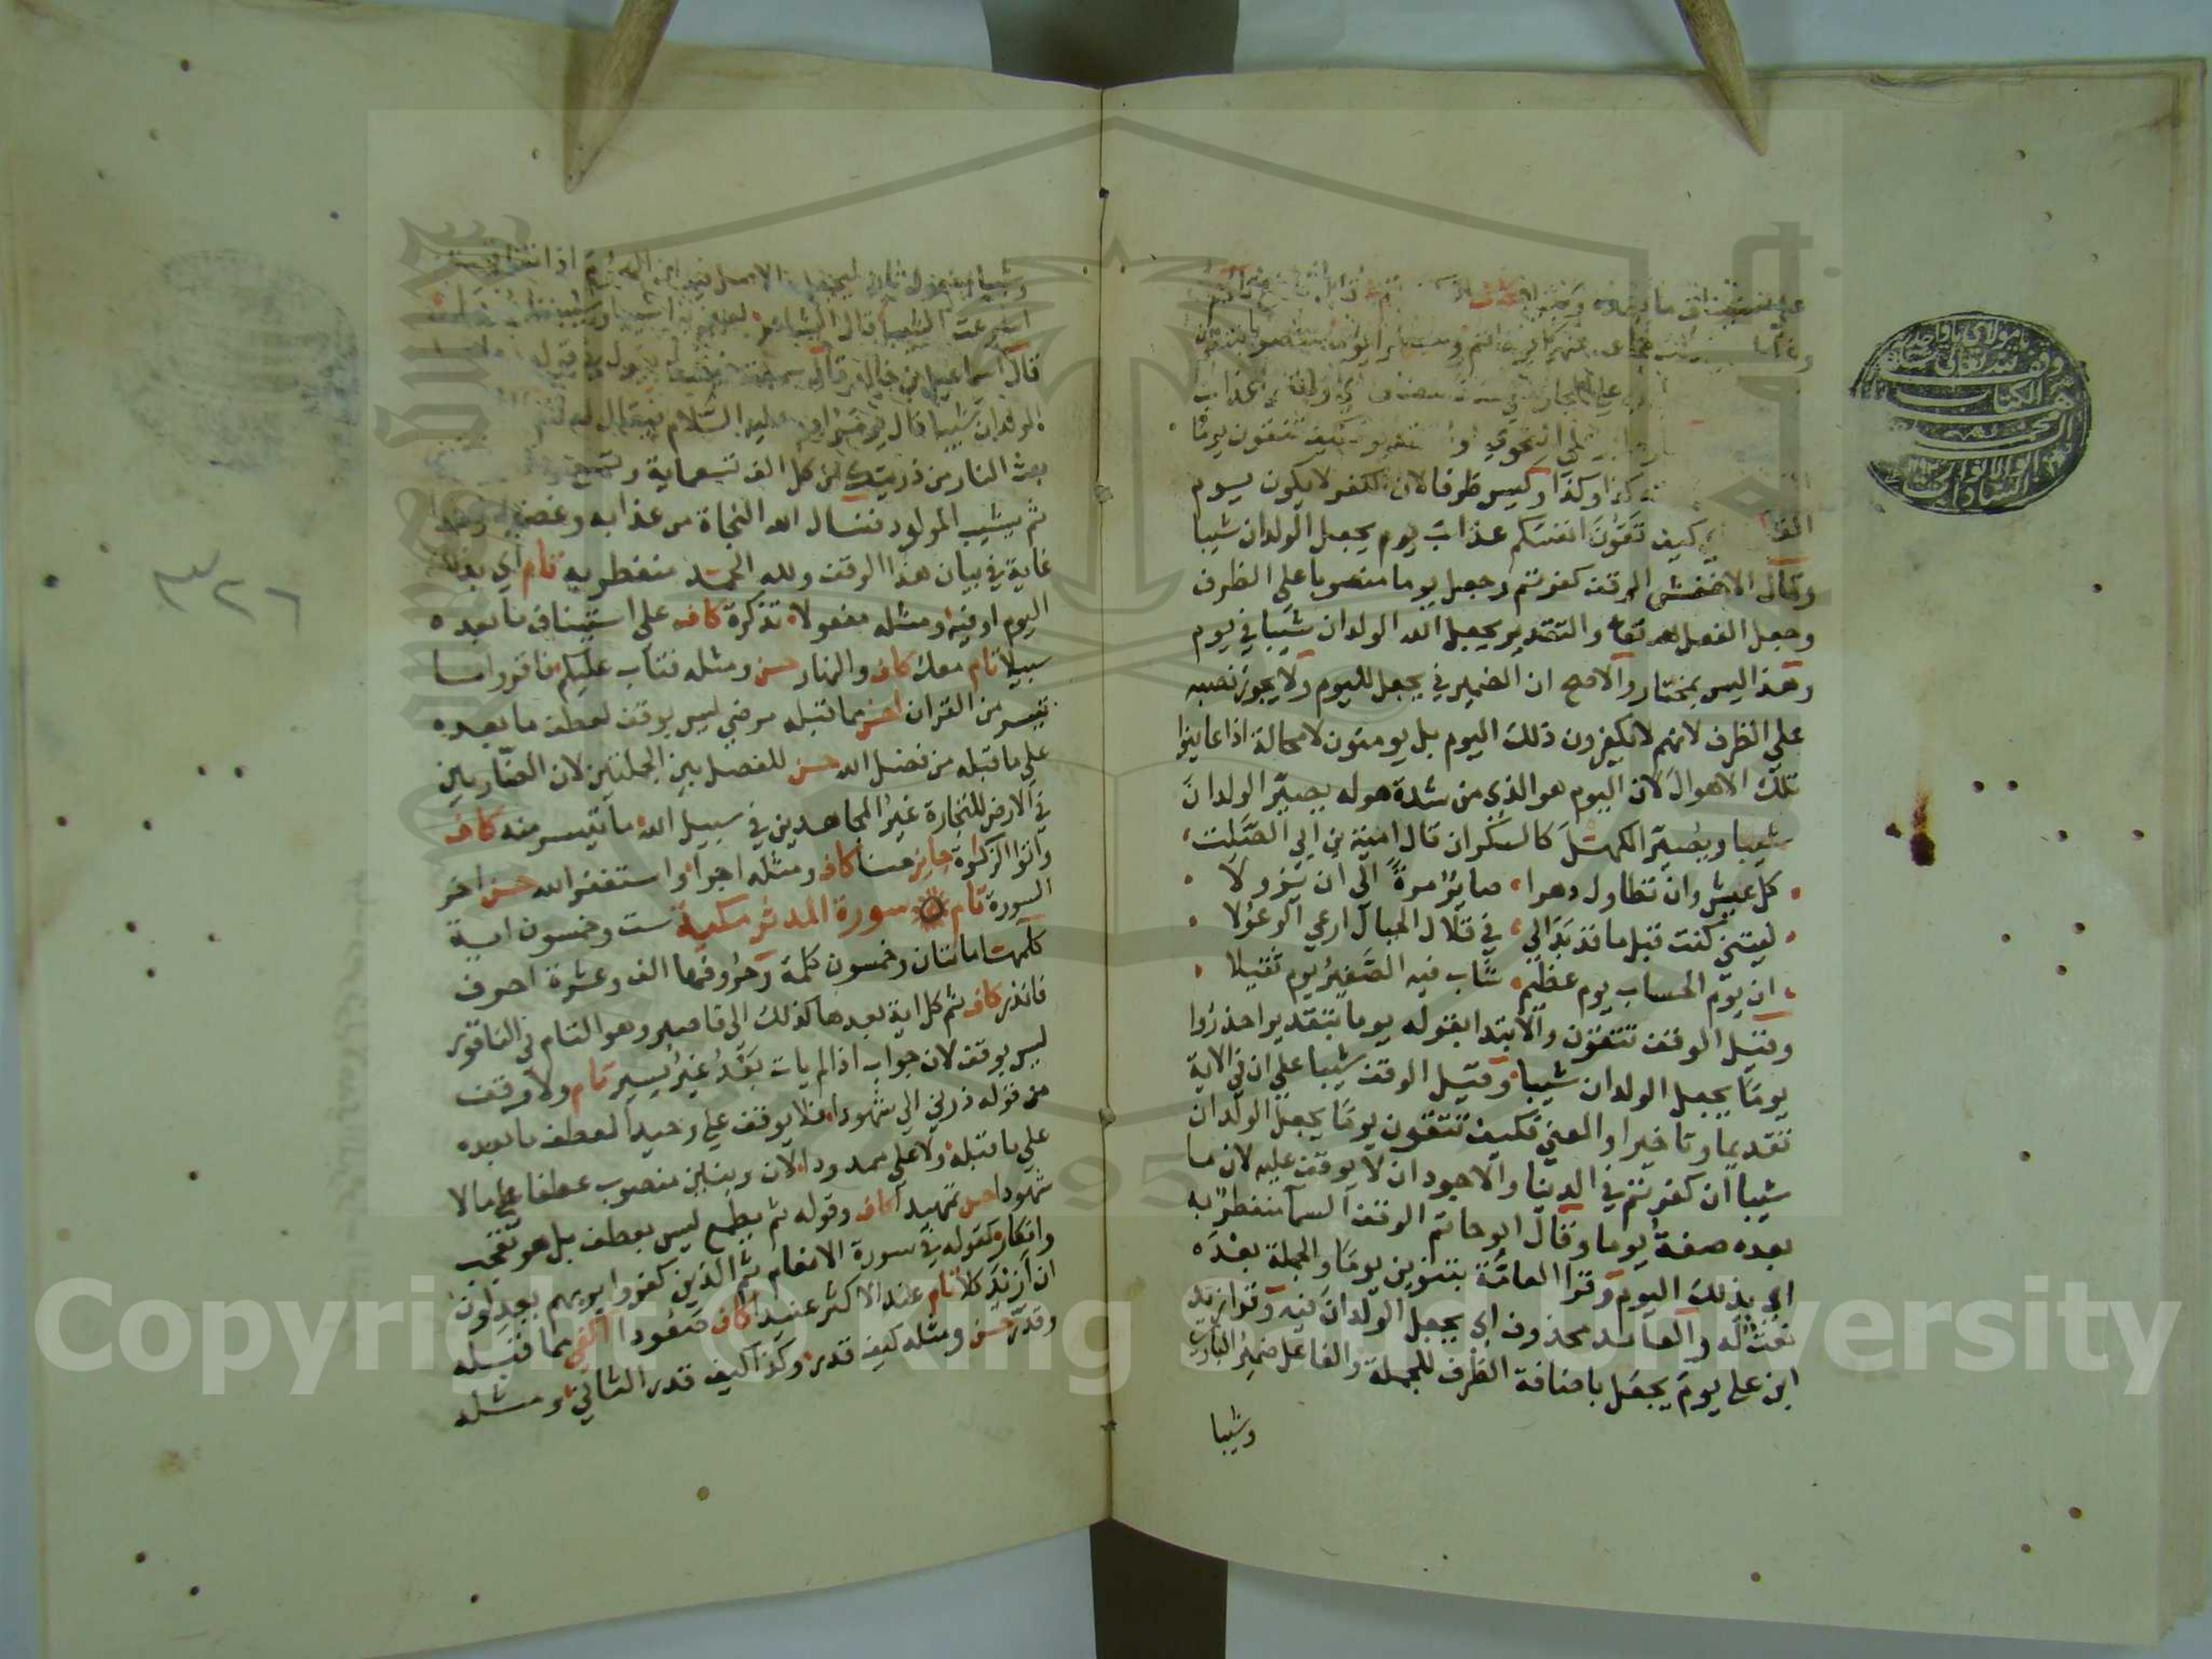 كذا وكذا وليس ظرفا لان الكفر لا يكون يوم
كيف تقون انفسكم عذاب يوم يجعل الولدان شيبا
وقال الاخفش الوقف كفرتم وجعل يوما منصوبا على الظرف
وجعل الفعل لله تعا والتقدير يجعل الله الولدان شيبا في يوم
وهذا ليس بمختار والاصح ان الضمير في يجعل لليوم ولا يجوز نصبه
على الظرف لانهم لا يكفرون ذلك اليوم بل يومنون لا محالة اذا عاينوا
تلك الاهوال لان اليوم هو الذي من شدة هوله يصير الولدان
شيبا ويصير الكهل كالسكران قال امية بن ابي الصلت
كل عيش وان تطاول دهرا صايرا مرة الى ان يزولا
ليتني كنت قبل ما قد بدا لي في قلال الجبال ارعى الوعولا
ان يوم الحساب يوم عظيم شاب فيه الصغير يوم ثقيلا
وقيل الوقف تتقون والابتدا بقوله يوما بتقدير احذروا
يوما يجعل الولدان شيبا وقيل الوقف شيبا على ان في الاية
تقديما وتاخيرا والمعنى فكيف تتقون يوما يجعل الولدان
شيبا ان كفرتم في الدنيا والاجود ان لا يوقف عليه لان ما
بعده صفة يوما وقال ابو حاتم الوقف السما منفطر به
اي بذلك اليوم وقرا العامة بتنوين يوما والجملة بعده
نعت له والعايد محذوف اي يجعل الولدان فيه وقرا زيد
ابن على يوم يجعل باضافة الظرف للجملة والفاعل ضمير الباري
وشيبا
وشيبا مفعول ثان ليجعل والاصل فيه ان الهموم اذا
اسرعت الشيب قال الشاعر
قال اسماعيل بن خالد قال سمعت خيثمة يقول في قوله
الولدان شيبا قال يومر ادم عليه السلام فيقال له قم
بعث النار من ذريتك من كل الف تسعماية
ثم يشيب المولود فنسال الله النجاة من عذابه وغضبه وهذا
غاية في بيان هذا الوقف ولله الحمد منفطر به تام اي بذلك
اليوم او فيه ومثله مفعولا تذكرة كاف على استيناف ما بعده
سبيلا تام معك كاف والنهار حسن ومثله فتاب عليكم فاقروا ما
تيسر من القران احسن مما قبله مرضي ليس بوقف لعطف ما بعده
على ما قبله من فضل الله حسن للفصل بين الجملتين لان الضاربين
في الارض للتجارة غير المجاهدين في سبيل الله ما تيسر منه كاف
واتوا الزكوة جايز حسنا كاف ومثله اجرا واستغفروا الله حسن اخر
السورة تام سورة المدثر مكية ست وخمسون اية
كلمتها ماتتان وخمسون كلمة وحروفها الف وعشرة احرف
فانذر كاف ثم كل اية بعدها كذلك الى فاصبر وهو التام في الناقور
ليس بوقف لان جواب اذا لم يات بعد غير يسير تام ولا وقف
من قوله ذرني الى شهودا فلا يوقف على وحيدا لعطف ما بعده
على ما قبله ولا على ممدودا لان وبنين منصوب عطفا على مالا
شهودا تمهيدا كاف وقوله ثم يطمع ليس بعطف بل هو تعجب
وانكار كقوله في سورة الانعام ثم الذين كفروا بربهم يعدلون
ان ازيد كلا تام عند الاكثر عنيدا كاف صعودا اكفى مما قبله
وقدر حسن ومثله كيف قدر وكذا كيف قدر الثاني ومثله
٣٢٦
Copyright © King Saud University